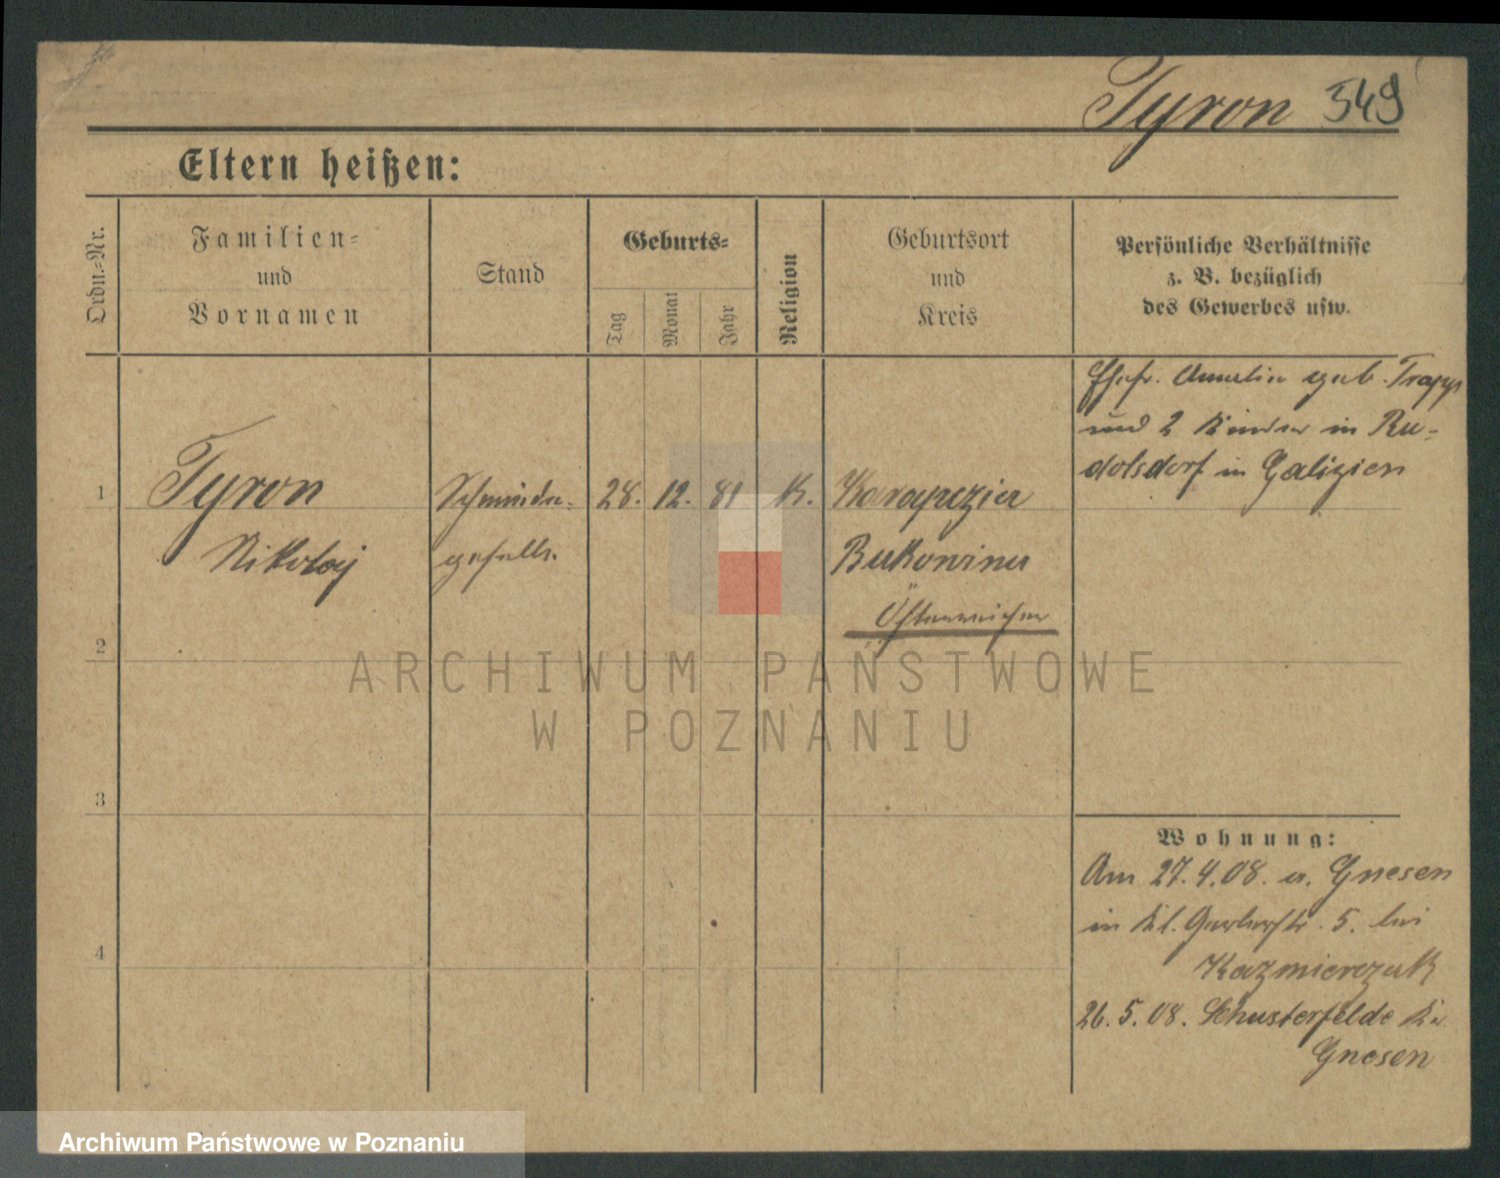 Tyron 549
Eltern heißen:
Ordn.-Nr.
Familien-
und
Vornamen
Stand
Geburts-
Tag
Monat
Jahr
Religion
Geburtsort
und
Kreis
Persönliche Verhältnisse
z. B. bezüglich
des Gewerbes usw.
1
Tyron
Nikolaj
Schmiede-
geselle.
28. 12. 81
K.
Karapczia
Bukowina
Österreicher
Ehefr. Amalia geb. Trapp
und 2 Kinder in Ru-
dolsdorf in Galizien
2
3
4
Wohnung:
Am 27.4.08. a. Gnesen
in Kl. Gerberstr. 5. bei
Kazmierczak
26.5.08. Schusterfelde Kr.
Gnesen
ARCHIWUM PAŃSTWOWE
W POZNANIU
Archiwum Państwowe w Poznaniu